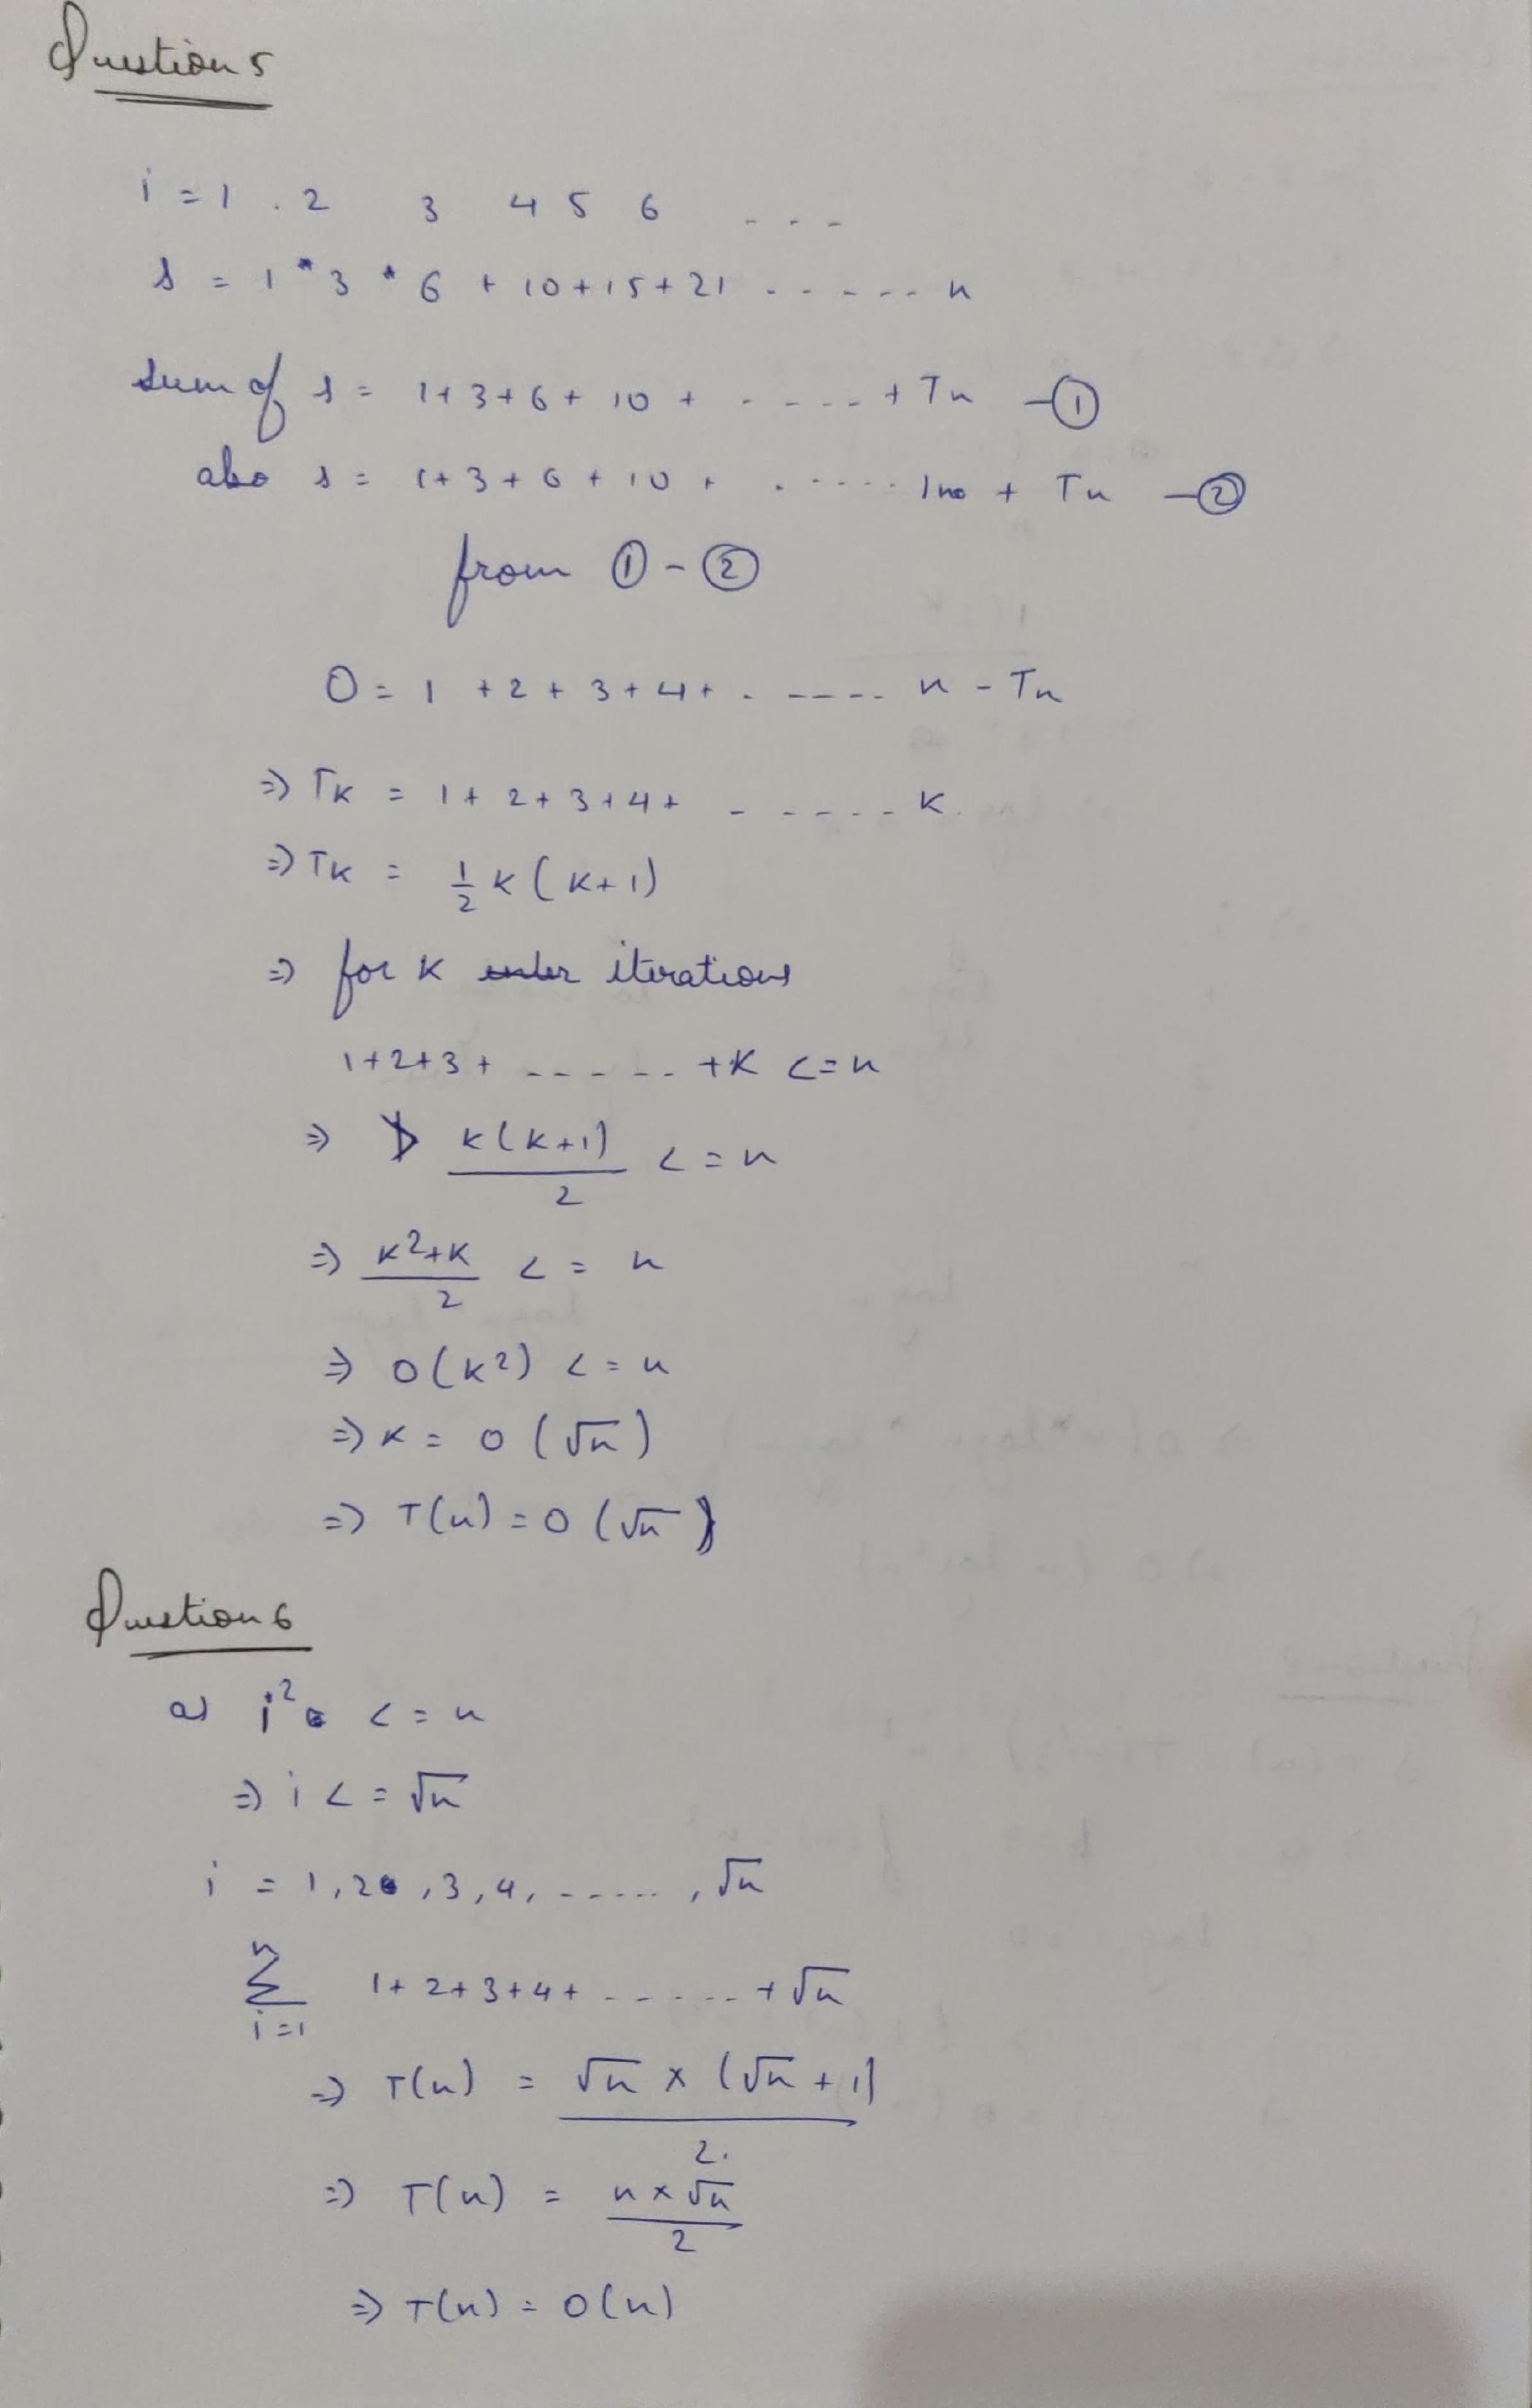 Question 5
i = 1 . 2 3 4 5 6 ---
s = 1 * 3 * 6 + 10 + 15 + 21 ------ n
sum of s = 1 + 3 + 6 + 10 + ----- + Tn —①
also s = 1 + 3 + 6 + 10 + ----- + Tn —②
from ① - ②
0 = 1 + 2 + 3 + 4 + . ---- n - Tn
⇒ TK = 1 + 2 + 3 + 4 + ----- K.
⇒ TK = 1/2 K (K + 1)
⇒ for K iterations
1 + 2 + 3 + ----- + K <= n
⇒ K(K+1)/2 <= n
⇒ K²+K/2 <= n
⇒ O(K²) <= n
⇒ K = O(√n)
⇒ T(n) = O(√n)
Question 6
as i² <= n
⇒ i <= √n
i = 1, 2, 3, 4, -----, √n
n
Σ 1 + 2 + 3 + 4 + ----- + √n
i=1
⇒ T(n) = √n × (√n + 1)/2.
⇒ T(n) = n × √n/2
⇒ T(n) = O(n)